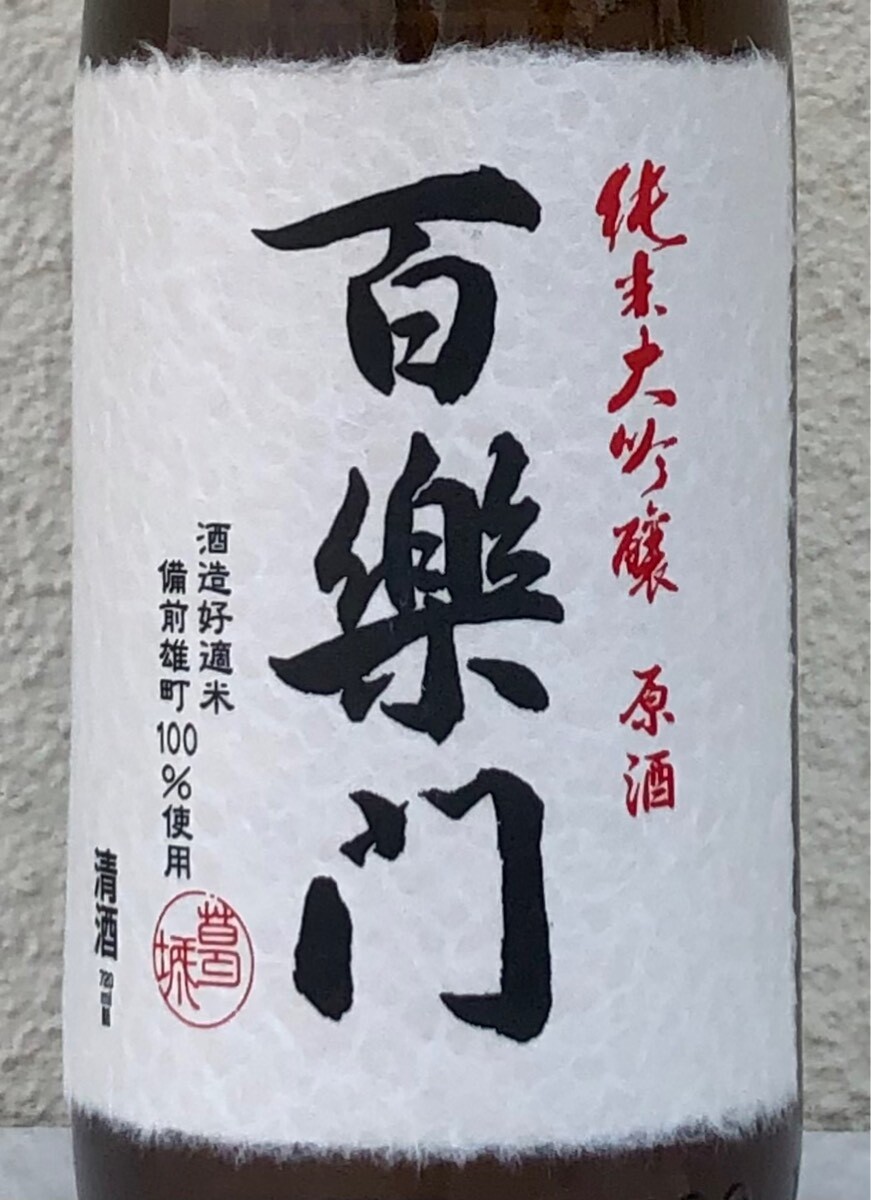 純米大吟醸 原酒
百樂门
酒造好適米
備前雄町100%使用
清酒
720ml